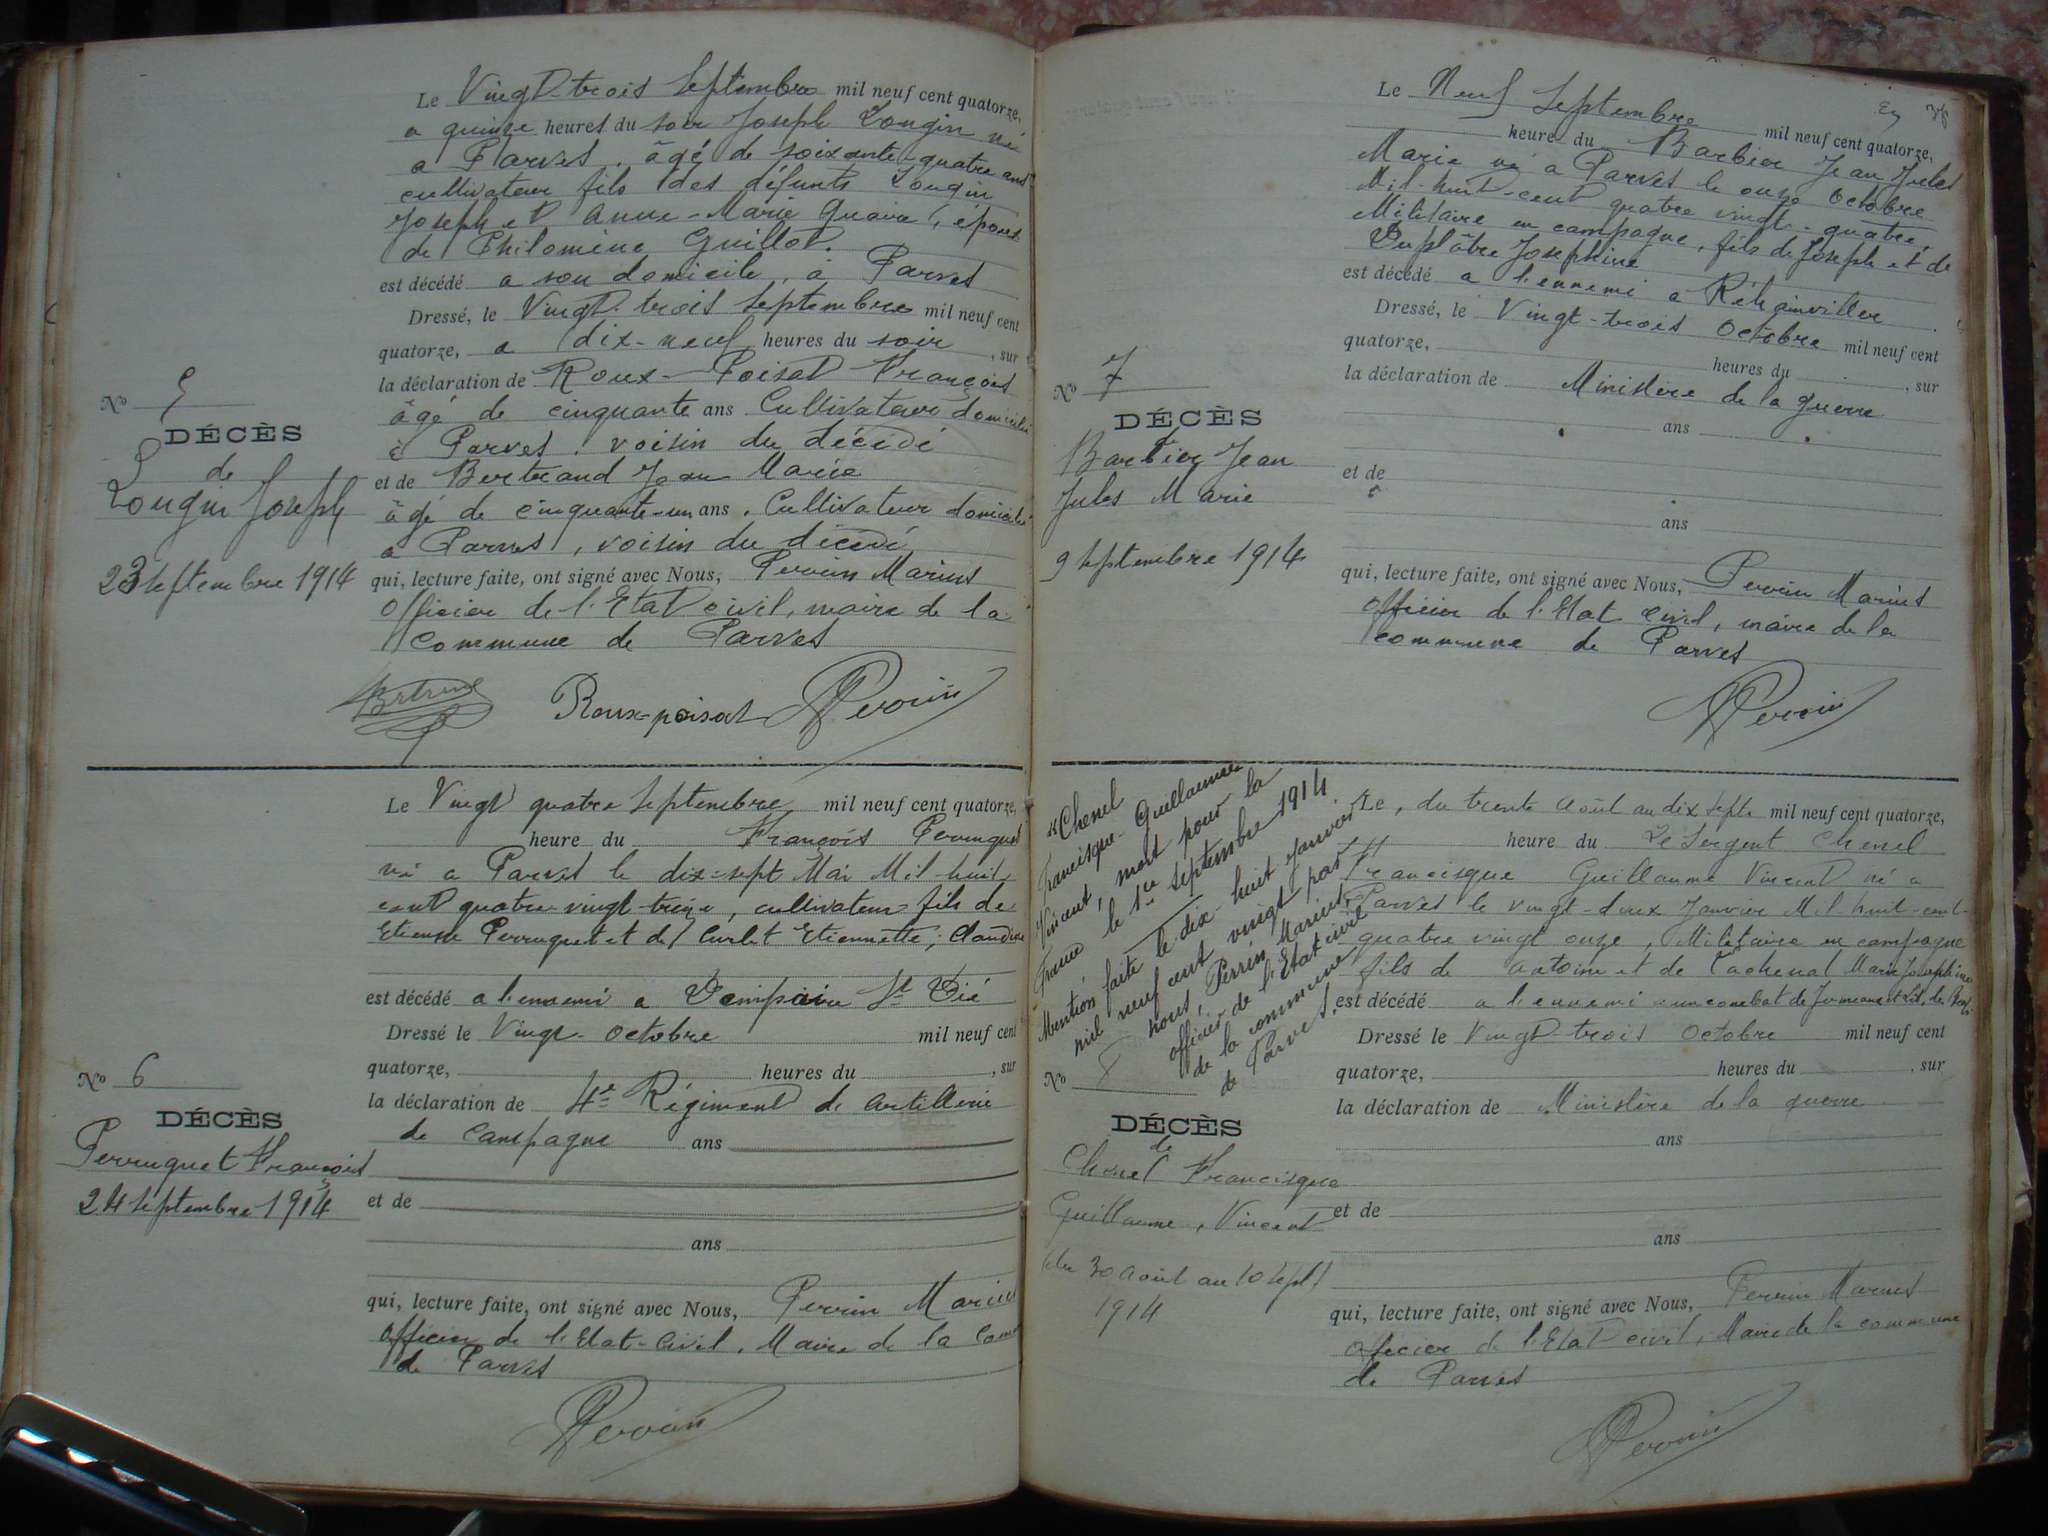 Le Vingt-trois Septembre mil neuf cent quatorze,
a quinze heures du soir Joseph Longin né
a Parves, âgé de soixante-quatre ans
cultivateur fils des défunts Longin
Joseph et Anne-Marie Quaire, époux
de Philomène Guillot.
est décédé a son domicile, à Parves
Dressé, le Vingt-trois Septembre mil neuf cent
quatorze, a dix-neuf heures du soir, sur
la déclaration de Roux-Poisat François
âgé de cinquante ans Cultivateur domicilié
à Parves, voisin du décédé
et de Bertrand Jean Marie
âgé de cinquante-un ans, Cultivateur domicilié
a Parves, voisin du décédé
qui, lecture faite, ont signé avec Nous, Perrin Marius
Officier de l'Etat civil, maire de la
commune de Parves
Roux-poisat Perrin
No 5
DÉCÈS
de
Longin Joseph
23 Septembre 1914
Le Vingt quatre Septembre mil neuf cent quatorze,
heure du François Perruquet
né a Parves le dix-sept Mai Mil huit
cent quatre-vingt-treize, cultivateur fils de
Etienne Perruquet et de Curlet Etiennette, Claudine
est décédé a l'ennemi a St Dié
Dressé le Vingt Octobre mil neuf cent
quatorze, heures du , sur
la déclaration de 4e Régiment de artillerie
de Campagne ans
et de
ans
qui, lecture faite, ont signé avec Nous, Perrin Marius
Officier de l'Etat-Civil, Maire de la Comne
de Parves
Perrin
No 6
DÉCÈS
Perruquet François
24 Septembre 1914
Le Neuf Septembre mil neuf cent quatorze,
heure du Barbier Jean Jules
Marie né a Parves le onze Octobre
Mil-huit-cent quatre vingt-quatre,
Militaire en campagne, fils de Joseph et de
Duplâtre Joséphine
est décédé a l'ennemi a Réhainviller
Dressé, le Vingt-trois Octobre mil neuf cent
quatorze, heures du , sur
la déclaration de Ministère de la guerre
ans
et de
ans
qui, lecture faite, ont signé avec Nous, Perrin Marius
Officier de l'Etat Civil, maire de la
commune de Parves
Perrin
No 7
DÉCÈS
Barbier Jean
Jules Marie
9 Septembre 1914
Chenel
Francisque Guillaume
Vincent, mort pour la
France le 1er Septembre 1914
Mention faite le dix huit Janvier
mil neuf cent vingt par
nous, Perrin Marius,
officier de l'Etat civil
de la commune
de Parves.
Le, du trente Août au dix Sept. mil neuf cent quatorze,
heure du Le Sergent Chenel
Francisque Guillaume Vincent né a
Parves le vingt-deux Janvier Mil huit-cent-
quatre vingt onze, Militaire en campagne
fils de Antoine et de Lachenal Marie Joséphine
est décédé a l'ennemi un combat de
Dressé le Vingt-trois Octobre mil neuf cent
quatorze, heures du , sur
la déclaration de Ministère de la guerre
ans
et de
ans
qui, lecture faite, ont signé avec Nous, Perrin Marius
Officier de l'Etat civil, Maire de la commune
de Parves
Perrin
No 8
DÉCÈS
de
Chenel Francisque
Guillaume, Vincent
du 30 Août au 10 Sept
1914